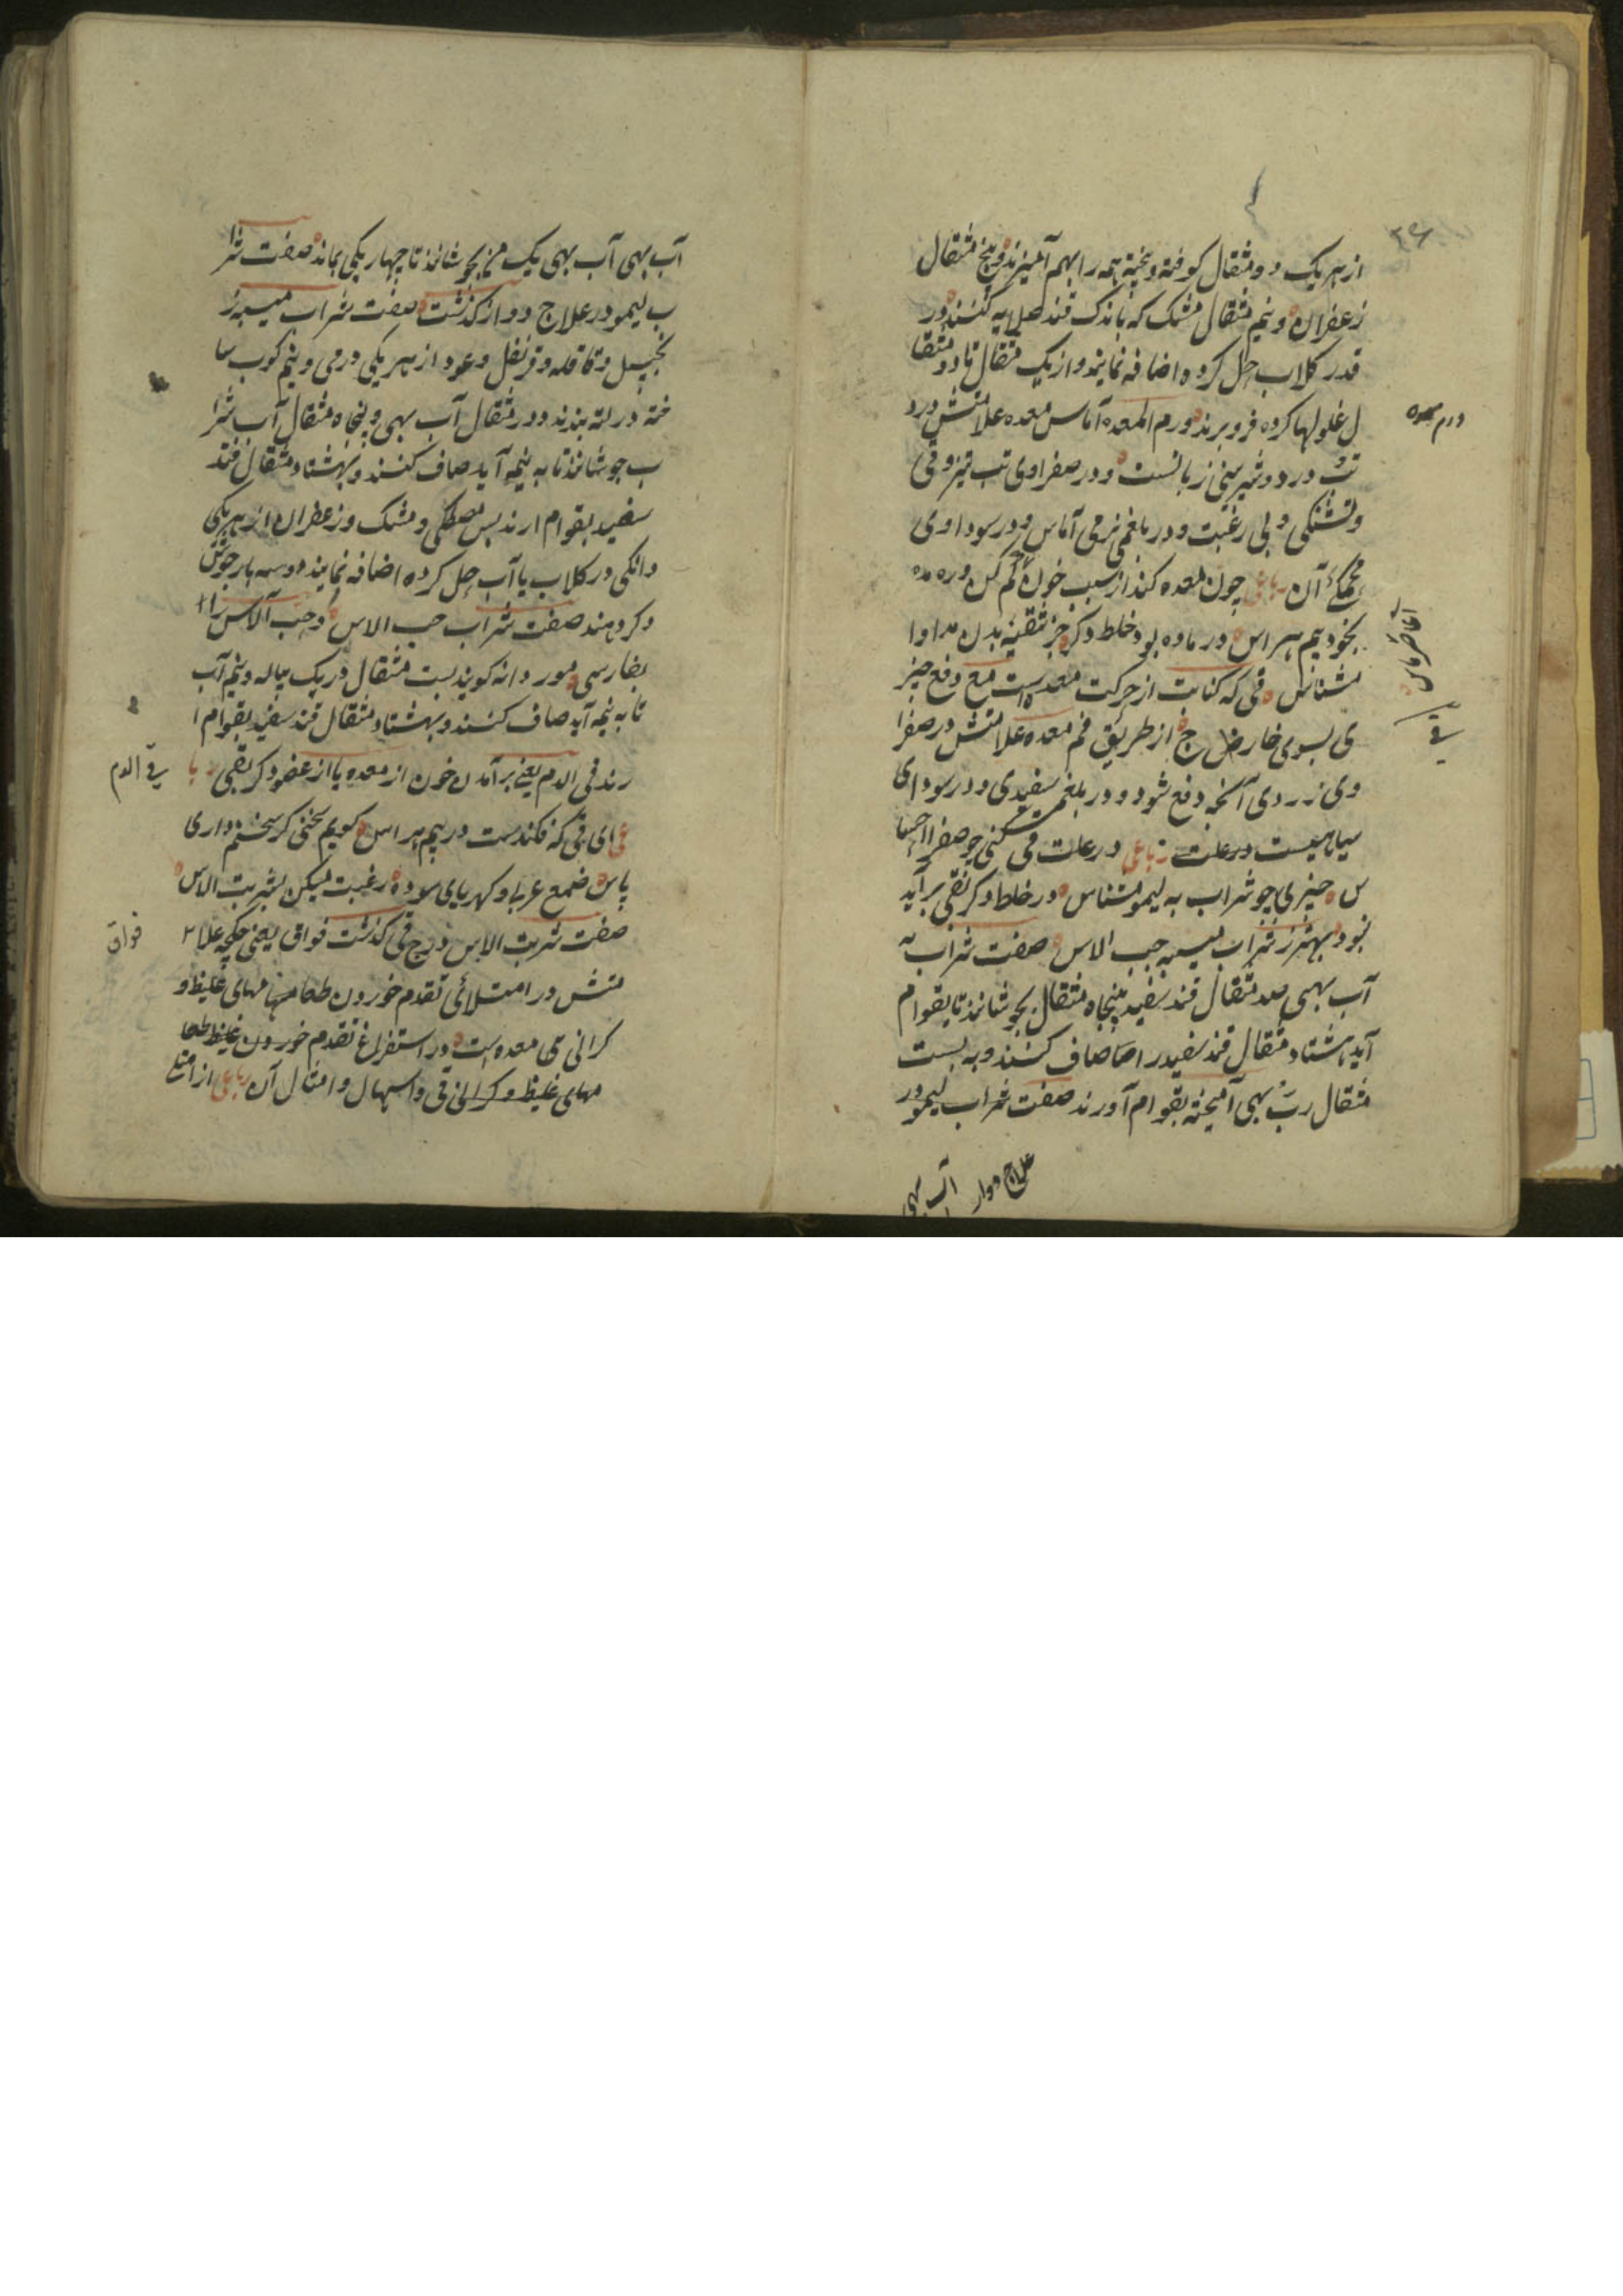 ۲۶
از هر یک دو مثقال کوفته و بیخته همه را بهم آمیزند و پنج مثقال
زعفران و نیم مثقال مشک که باندک قند صلایه کنند و در
قدر کلاب حل کرده اضافه نمایند و از یک مثقال تا دو مثقا
ل غلولها کرده فرو برند ورم المعده آماس معده علامتش درد
ورم معده
و در صفراوی تب تیز و قی
و تشنکی و بی رغبت و در بلغمی نرمی آماس و در سوداوی
آن رباعی چون معده کند از سبب خون
بخود بیم هراس در ماده بود خلط دکر جز تنقیه بدن مداوا
مشناس قی که کنایت از حرکت معده است مع دفع چیز
ی بسوی خارج از طریق فم معده علامتش در صفرا
قی
وی زردی آنچه دفع شود و در بلغمی سفیدی و در سودای
سیاهیست در علت رباعی در علت قی کنی چو صفرا احسا
س چیزی چو شراب به لیمو مشناس در خلط دکر نقی بر آید
نبود بهتر ز شراب میبه حب الاس صفت شراب به
آب بهی صد مثقال قند سفید پنجاه مثقال بجوشانند تا بقوام
آید هشتاد مثقال قند سفید را صاف کنند و به بیست
مثقال رب بهی آمیخته بقوام آورند صفت شراب لیمو در
علاج دوار آب بهی
آب بهی آب بهی یک من بجوشانند تا چهار یکی بماند صفت شرا
ب لیمو در علاج دوار کذشت صفت شراب میبه ز
نجبیل و قاقله و قرنفل و عود از هر یکی درمی و نیم کوب سا
خته در لته بندند و در مثقال آب بهی و پنجاه مثقال آب شرا
ب جوشانند تا به نیمه آید صاف کنند و بهشتاد مثقال قند
سفید بقوام ارند پس مصطکی و مشک و زعفران از هر یکی
دانکی در کلاب یا آب حل کرده اضافه نمایند دو سه بار جوش
دکر دهند صفت شراب حب الاس و حب آلاس را
بفارسی مورد دانه کویند بیست مثقال در یک پیاله و نیم آب
تا به نیمه آید صاف کنند و بهشتاد مثقال قند سفید بقوام ا
رند قی الدم یعنی برآمدن خون از معده یا از عضو دکر بقی ربا
قی الدم
عی ای قی که فکندست در بیم هراس کویم سخنی کر سخنم داری
پاس صمغ عربی و کهربای سوده رغبت میکن بشربت الاس
صفت شربت الاس در ج قی کذشت فواق یعنی هکچه علا
فواق
متش در امتلائی تقدم خوردن طعامهای غلیظ و
کرانی معده است و در استفراغ تقدم خوردن غلیظ طعا
مهای غلیظ و کرانی قی و اسهال و امثال آن رباعی از امتلا